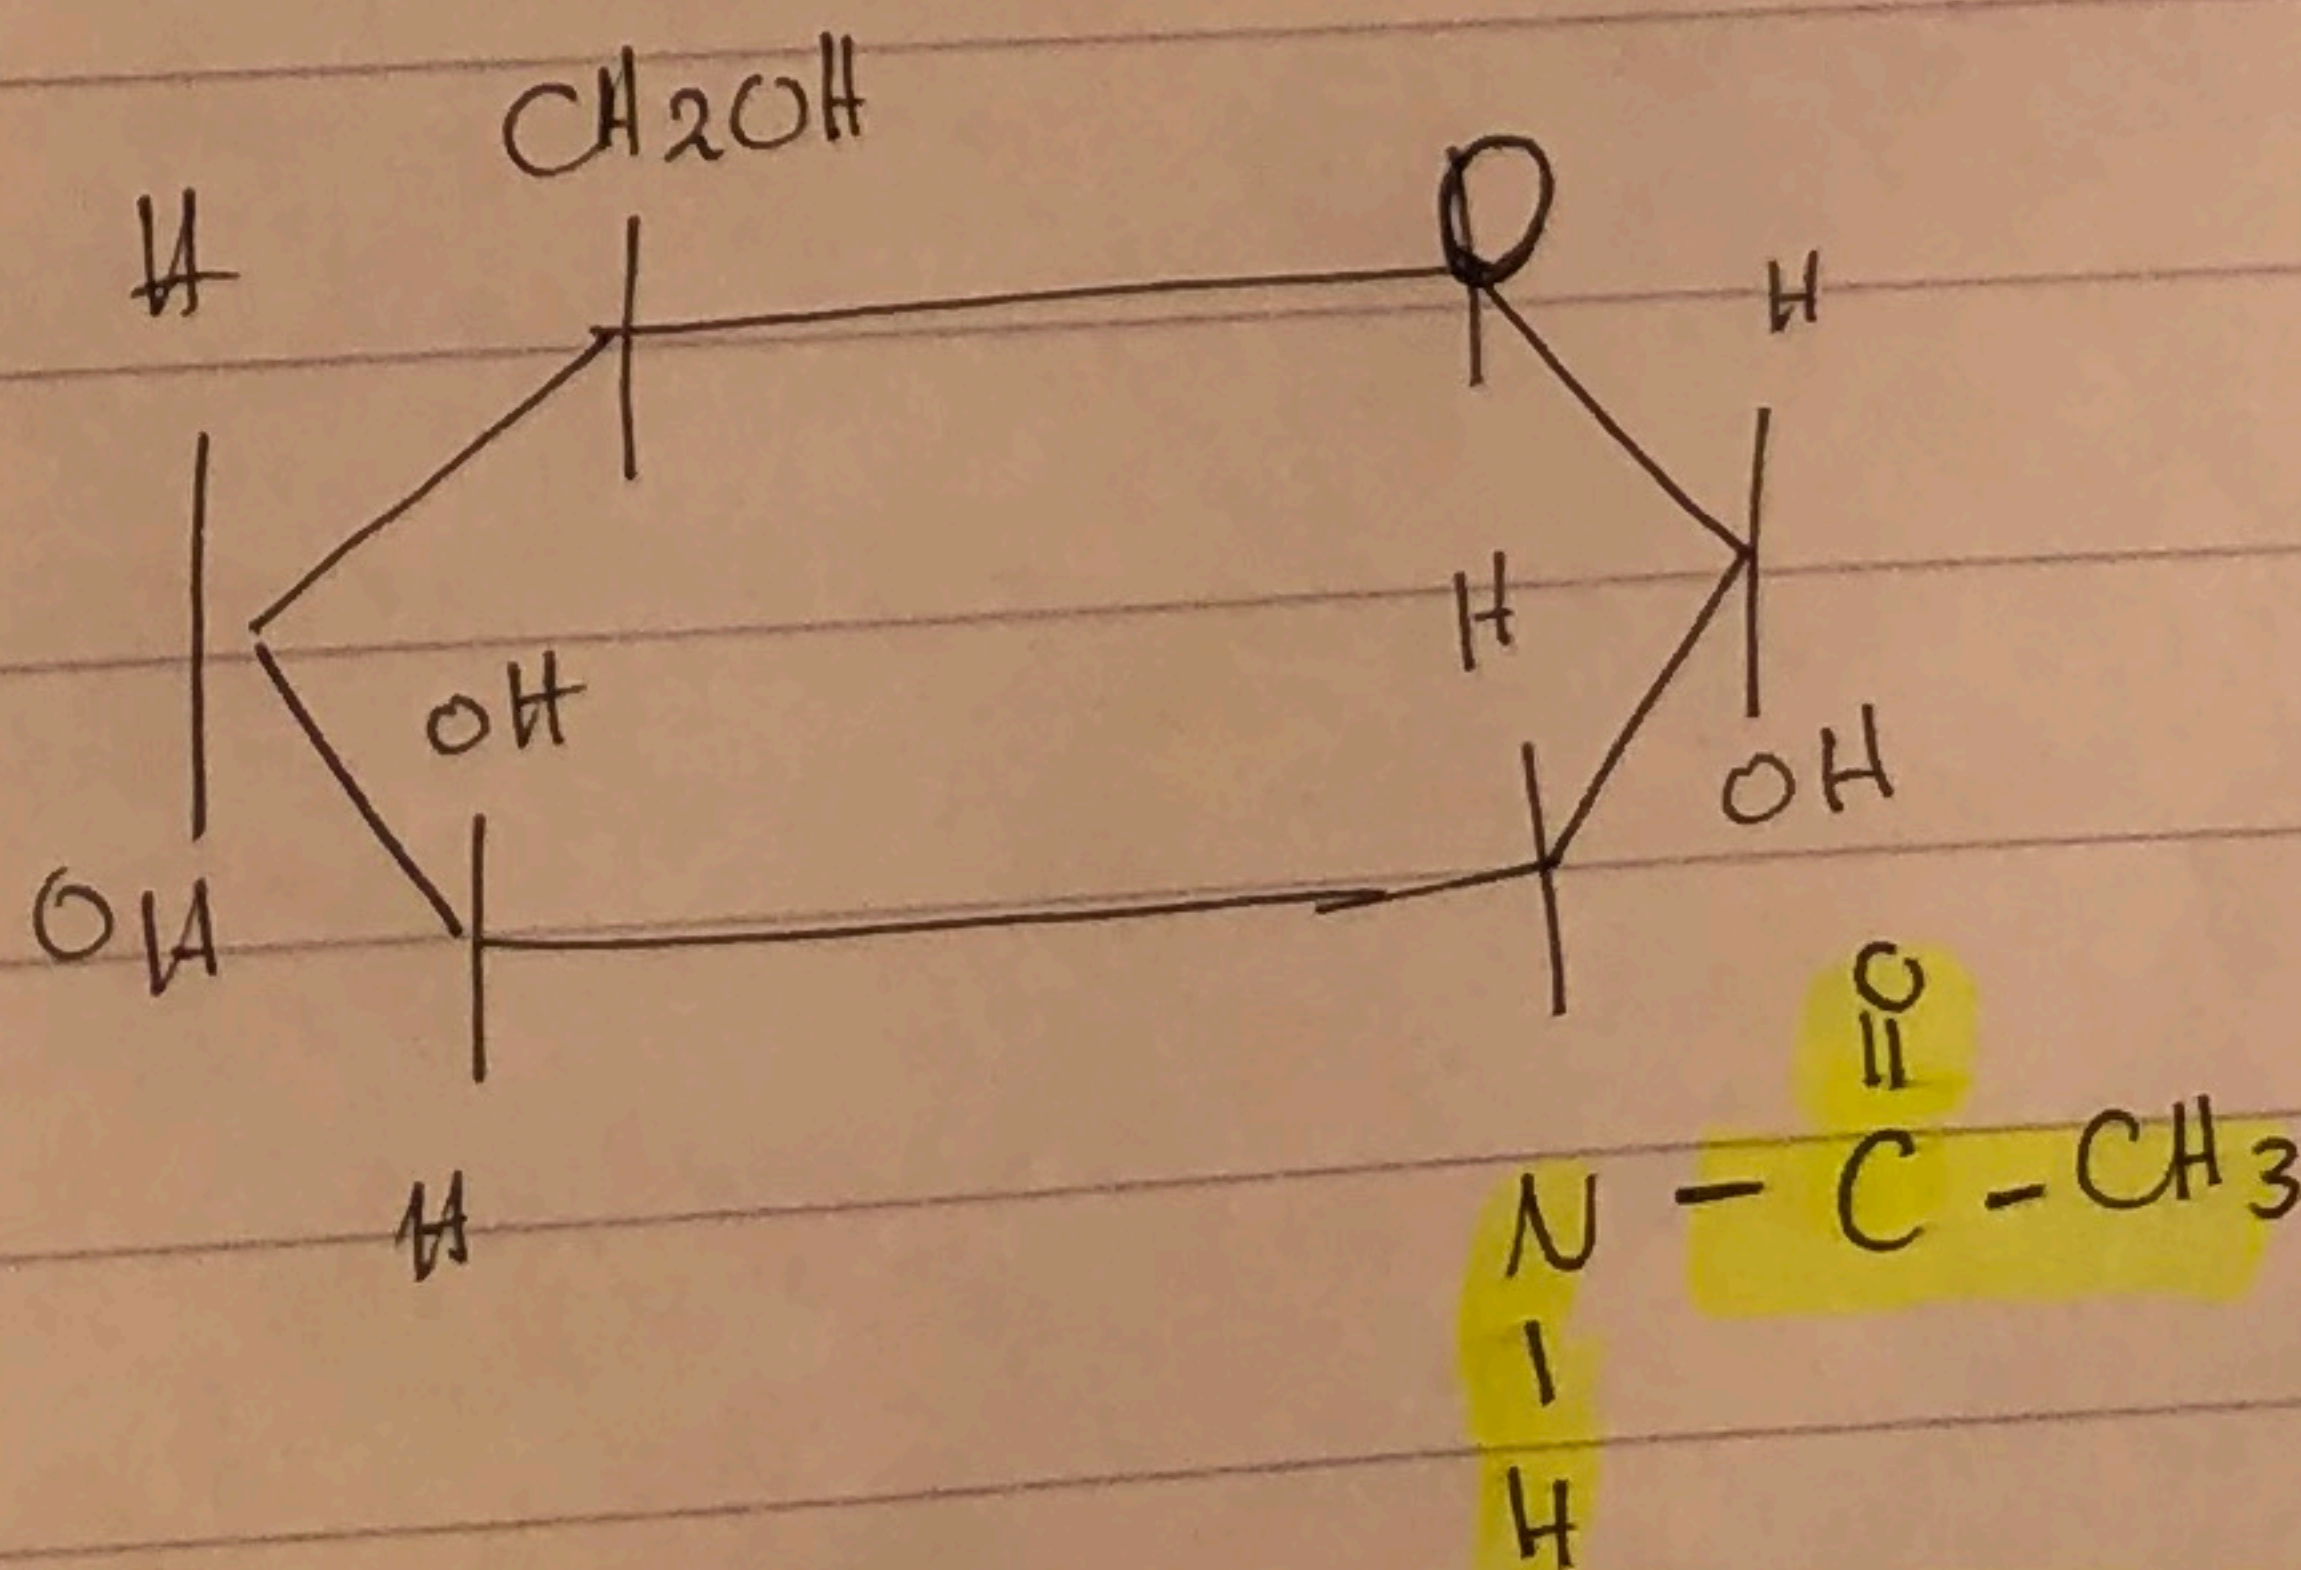 CH2OH
H
O
H
H
OH
OH
OH
O
=
N - C - CH3
H
H